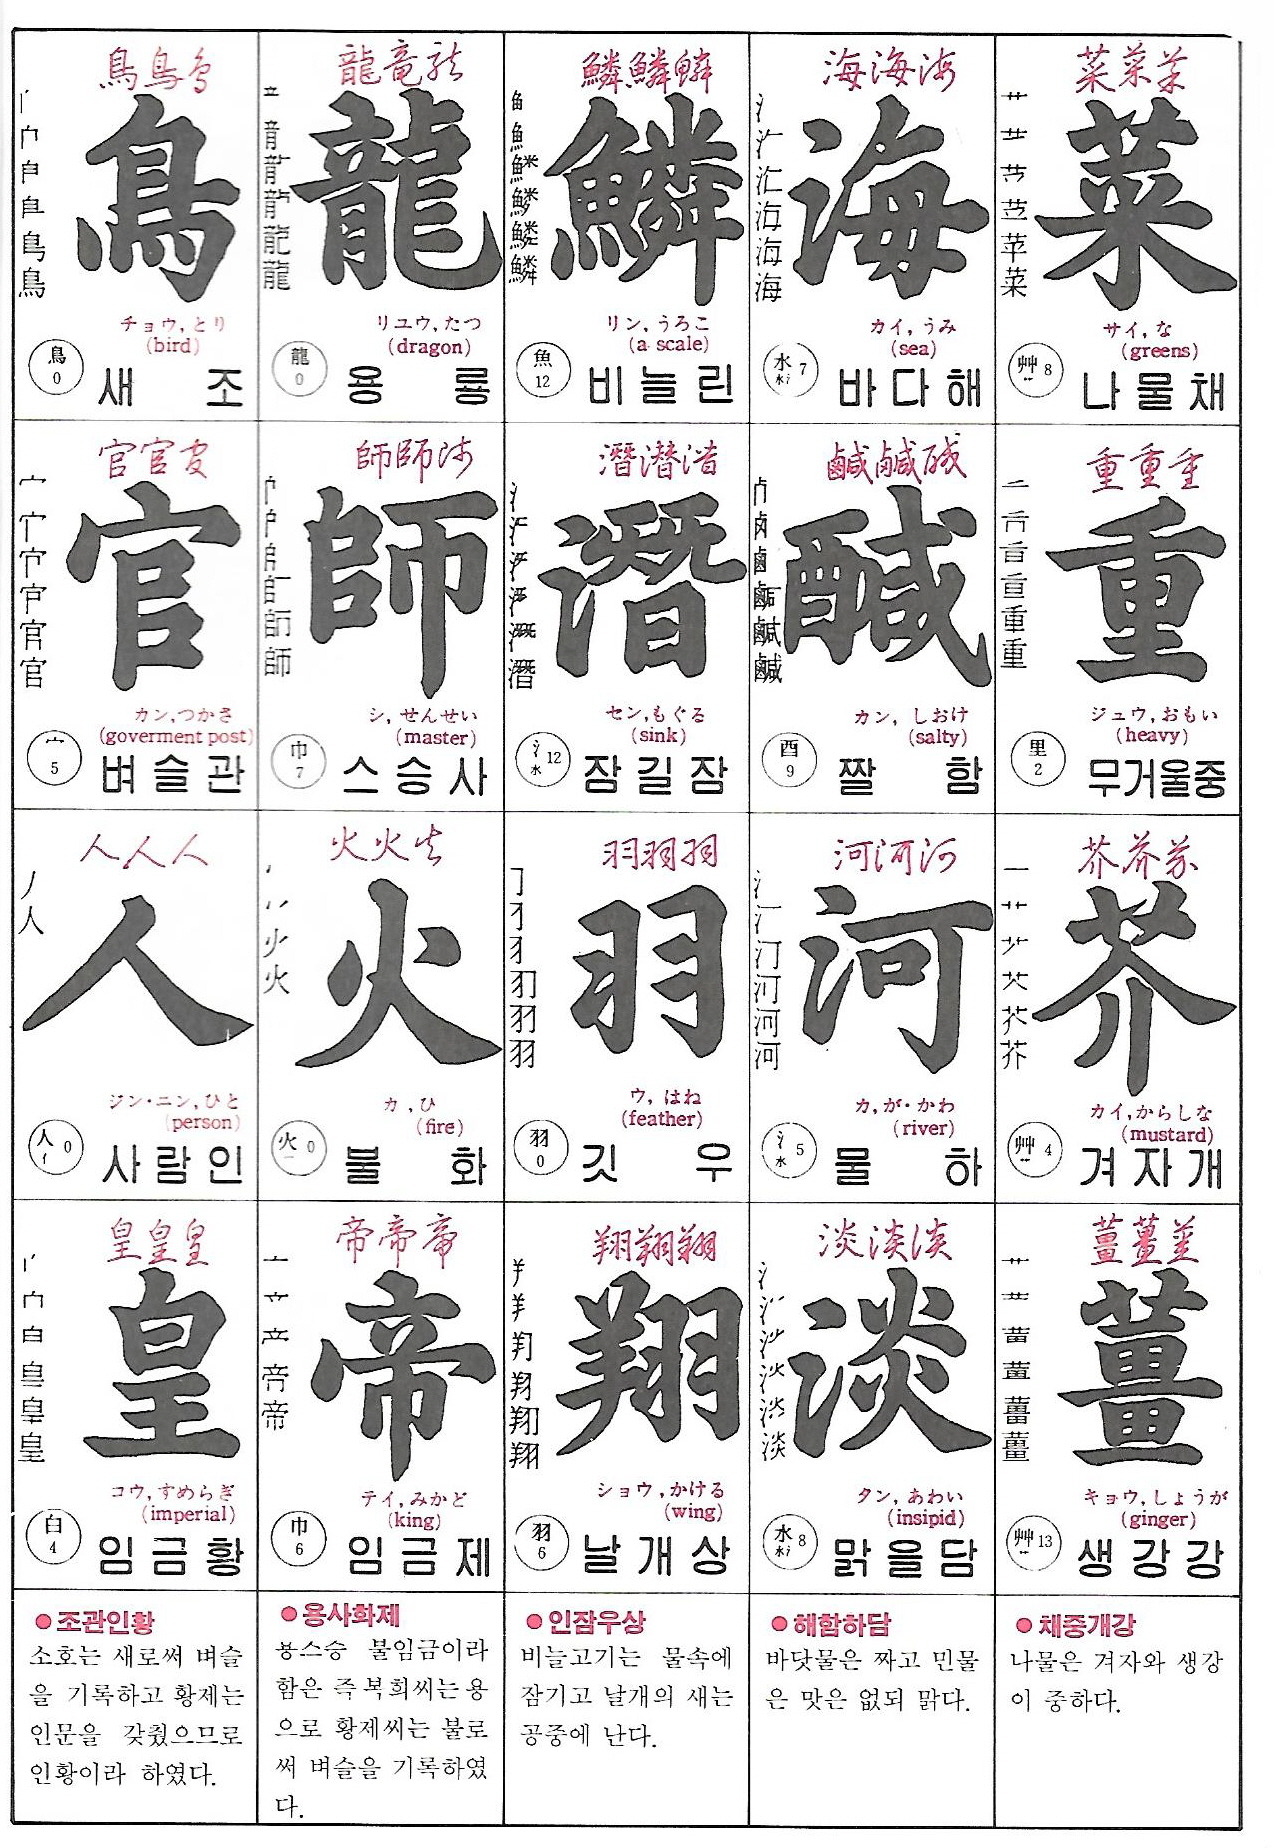 菜菜菜
菜
サイ, な
(greens)
艸 8
나물채
重重重
重
ジュウ, おもい
(heavy)
里
2
무거울중
芥芥芥
芥
カイ, からしな
(mustard)
艸 4
겨자개
薑薑薑
薑
キョウ, しょうが
(ginger)
艸 13
생강강
●채중개강
나물은 겨자와 생강
이 중하다.
海海海
海
カイ, うみ
(sea)
水 7
바다해
鹹鹹醎
醎
カン, しおけ
(salty)
酉
9
짤 함
河河河
河
カ, が・かわ
(river)
氵 5
水
물 하
淡淡淡
淡
タン, あわい
(insipid)
水 8
맑을담
●해함하담
바닷물은 짜고 민물
은 맛은 없되 맑다.
鱗鱗鱗
鱗
リン, うろこ
(a scale)
魚
12
비늘린
潛潛潛
潛
セン, もぐる
(sink)
氵 12
水
잠길잠
羽羽羽
羽
ウ, はね
(feather)
羽
0
깃 우
翔翔翔
翔
ショウ, かける
(wing)
羽
6
날개상
●인잠우상
비늘고기는 물속에
잠기고 날개의 새는
공중에 난다.
龍竜龍
龍
リユウ, たつ
(dragon)
龍
0
용 룡
師師师
師
シ, せんせい
(master)
巾
7
스승사
火火火
火
カ, ひ
(fire)
火 0
불 화
帝帝帝
帝
テイ, みかど
(king)
巾
6
임금제
●용사화제
용스승 불임금이라
함은 즉 복희씨는 용
으로 황제씨는 불로
써 벼슬을 기록하였
다.
鳥鳥鳥
鳥
チョウ, とり
(bird)
鳥
0
새 조
官官官
官
カン, つかさ
(goverment post)
宀
5
벼슬관
人人人
人
ジン・ニン, ひと
(person)
人 0
亻
사람인
皇皇皇
皇
コウ, すめらぎ
(imperial)
白
4
임금황
●조관인황
소호는 새로써 벼슬
을 기록하고 황제는
인문을 갖췄으므로
인황이라 하였다.